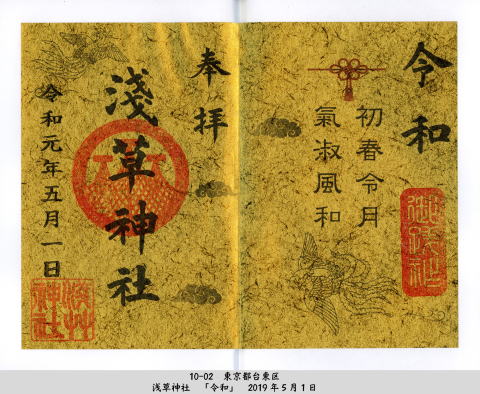 令和
初春令月
氣淑風和
奉拝
淺草神社
令和元年五月一日
淺草
神社
10-02 東京都台東区
浅草神社 「令和」 2019年5月1日